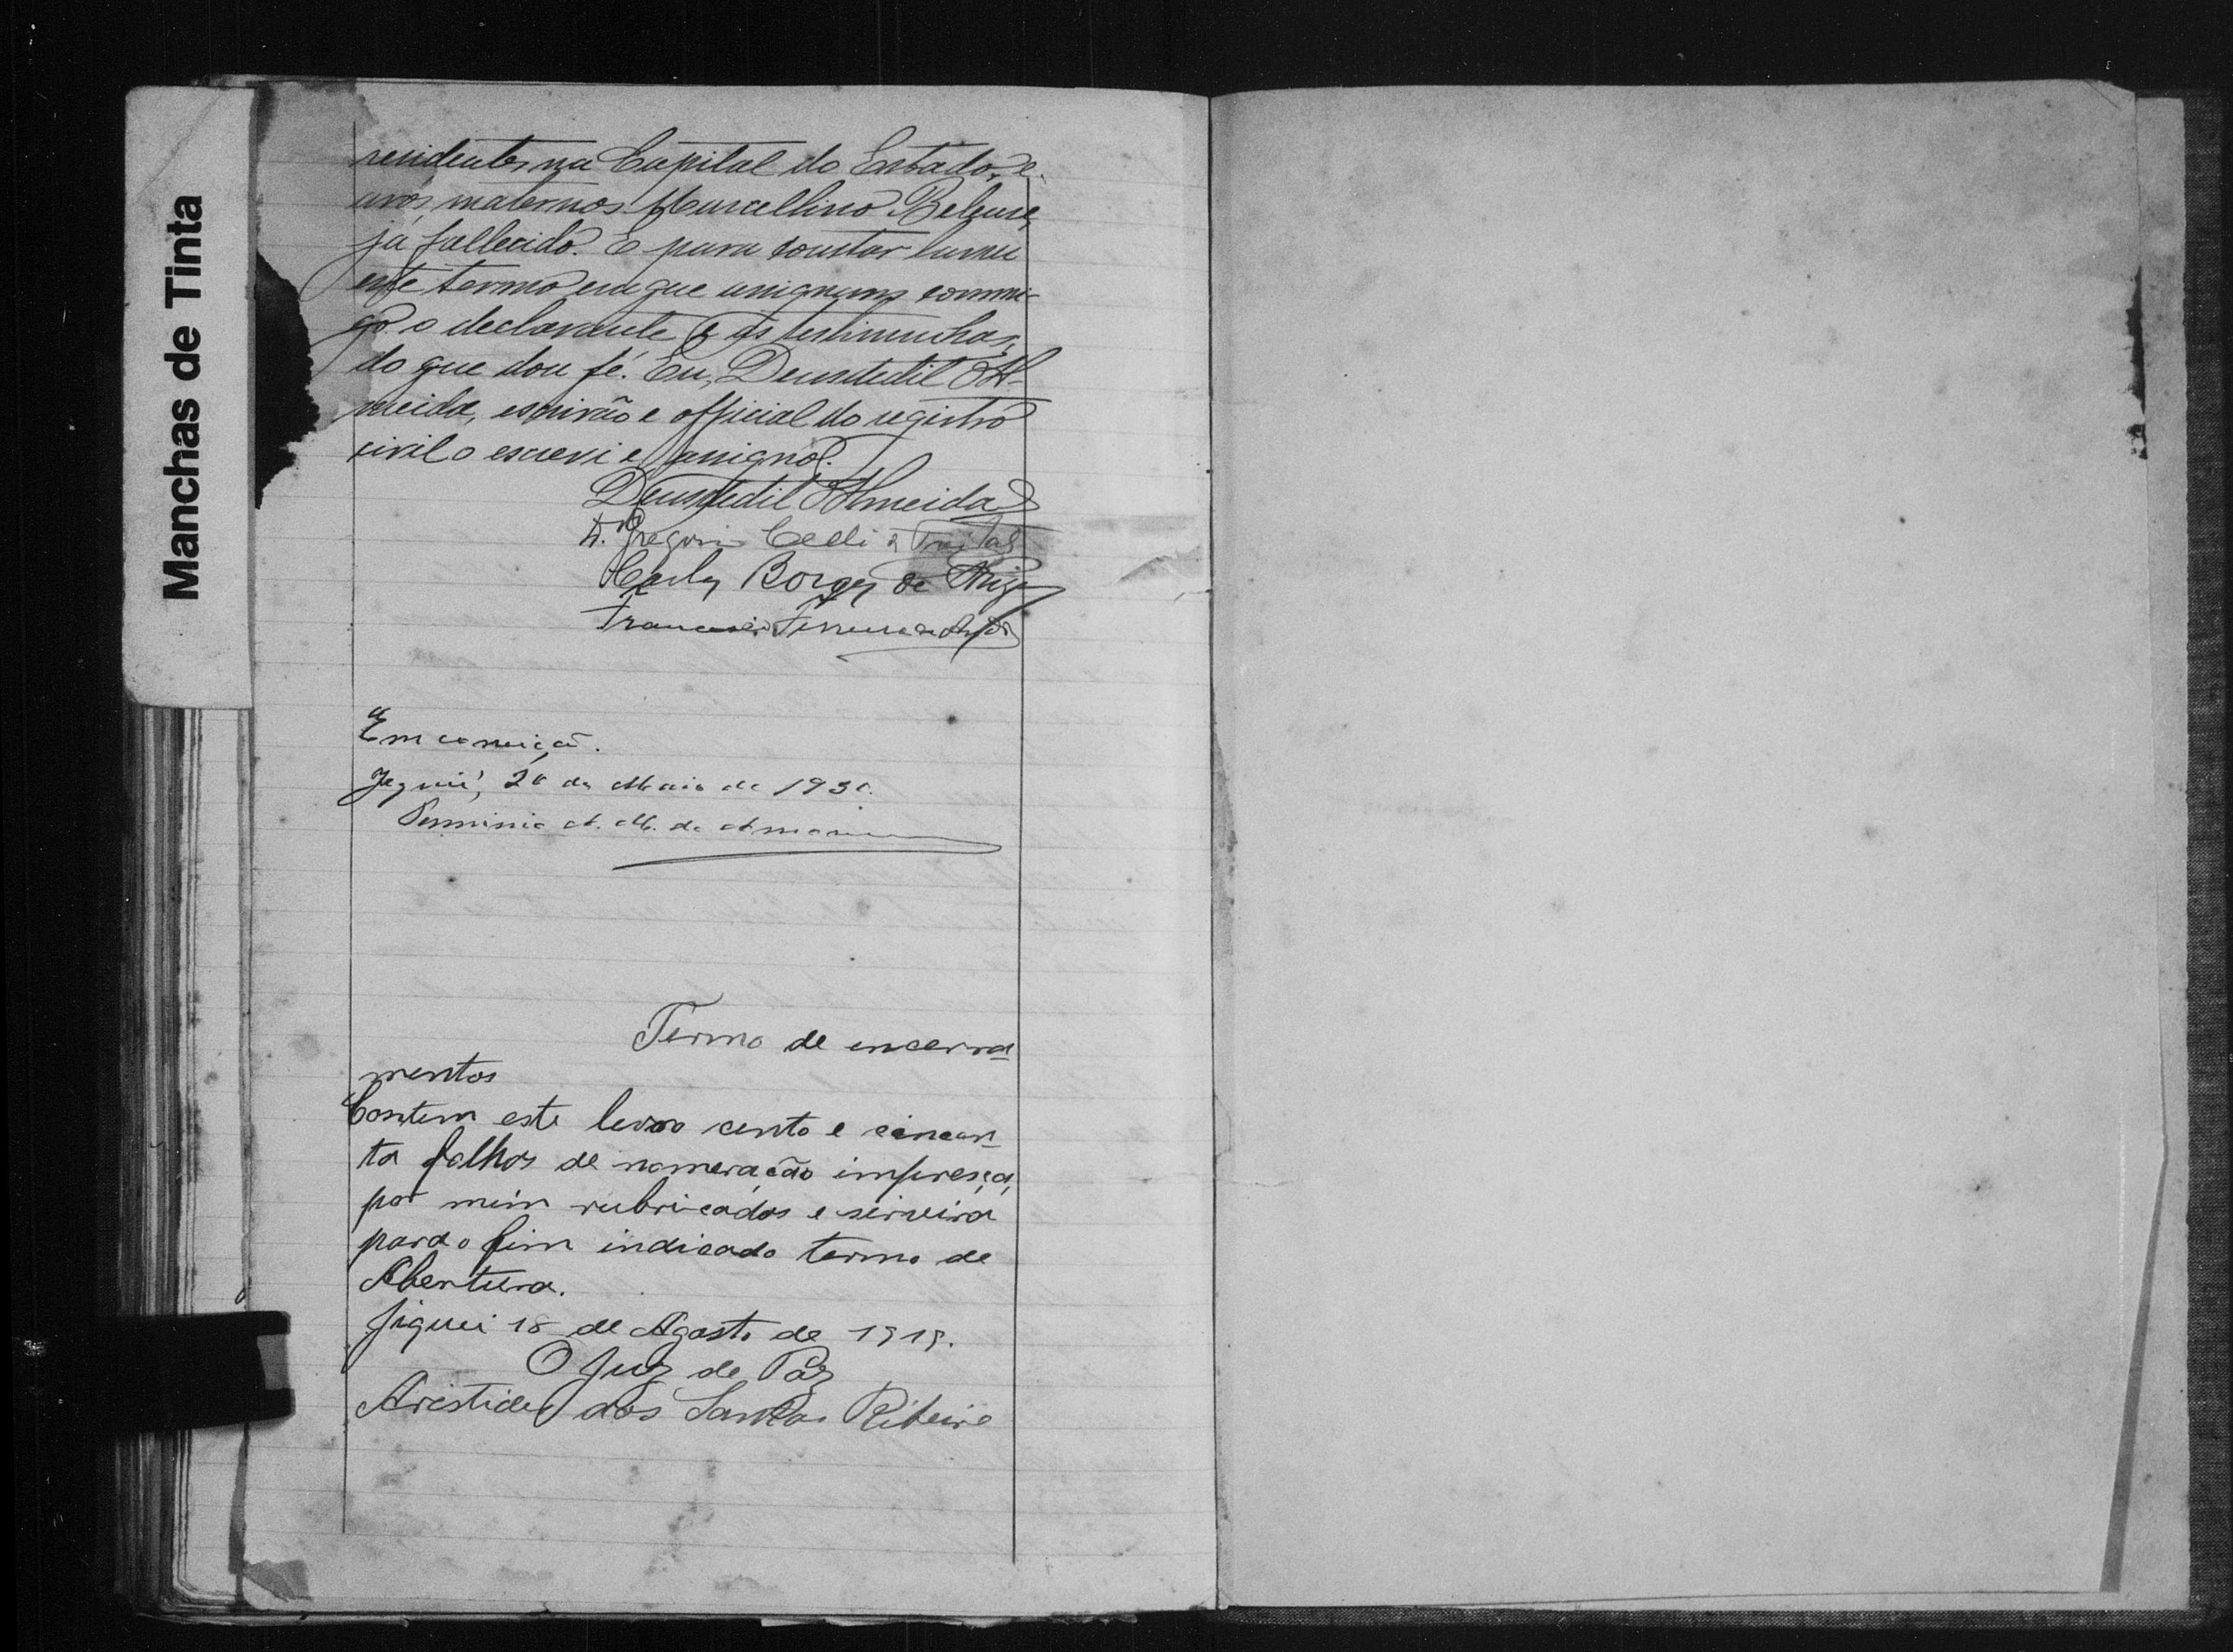 Manchas de Tinta
residentes na Capital do Estado, e
avós maternos Marcellino
já fallecido. E para constar lavrei
este termo em que assignam commi-
go o declarante e as testimunhas,
do que dou fé. Eu, Deusdedit Al-
meida, escrivão e official do registro
civil o escrevi e assigno.
Deusdedit Almeida
Borges de
Francisco Ferreira
Em correição.
Jequié, 20 de Maio de 1930.
A. M. de
Termo de encerra
mentos
Contem este levro cento e cincon
ta folhas de nomeração impresça,
por mim rubricados e serveira
para o fim indicado termo de
Abertura.
Jiquei 18 de Agosto de 1919.
O Juz de Paz
Aristides dos Santos Ribeiro